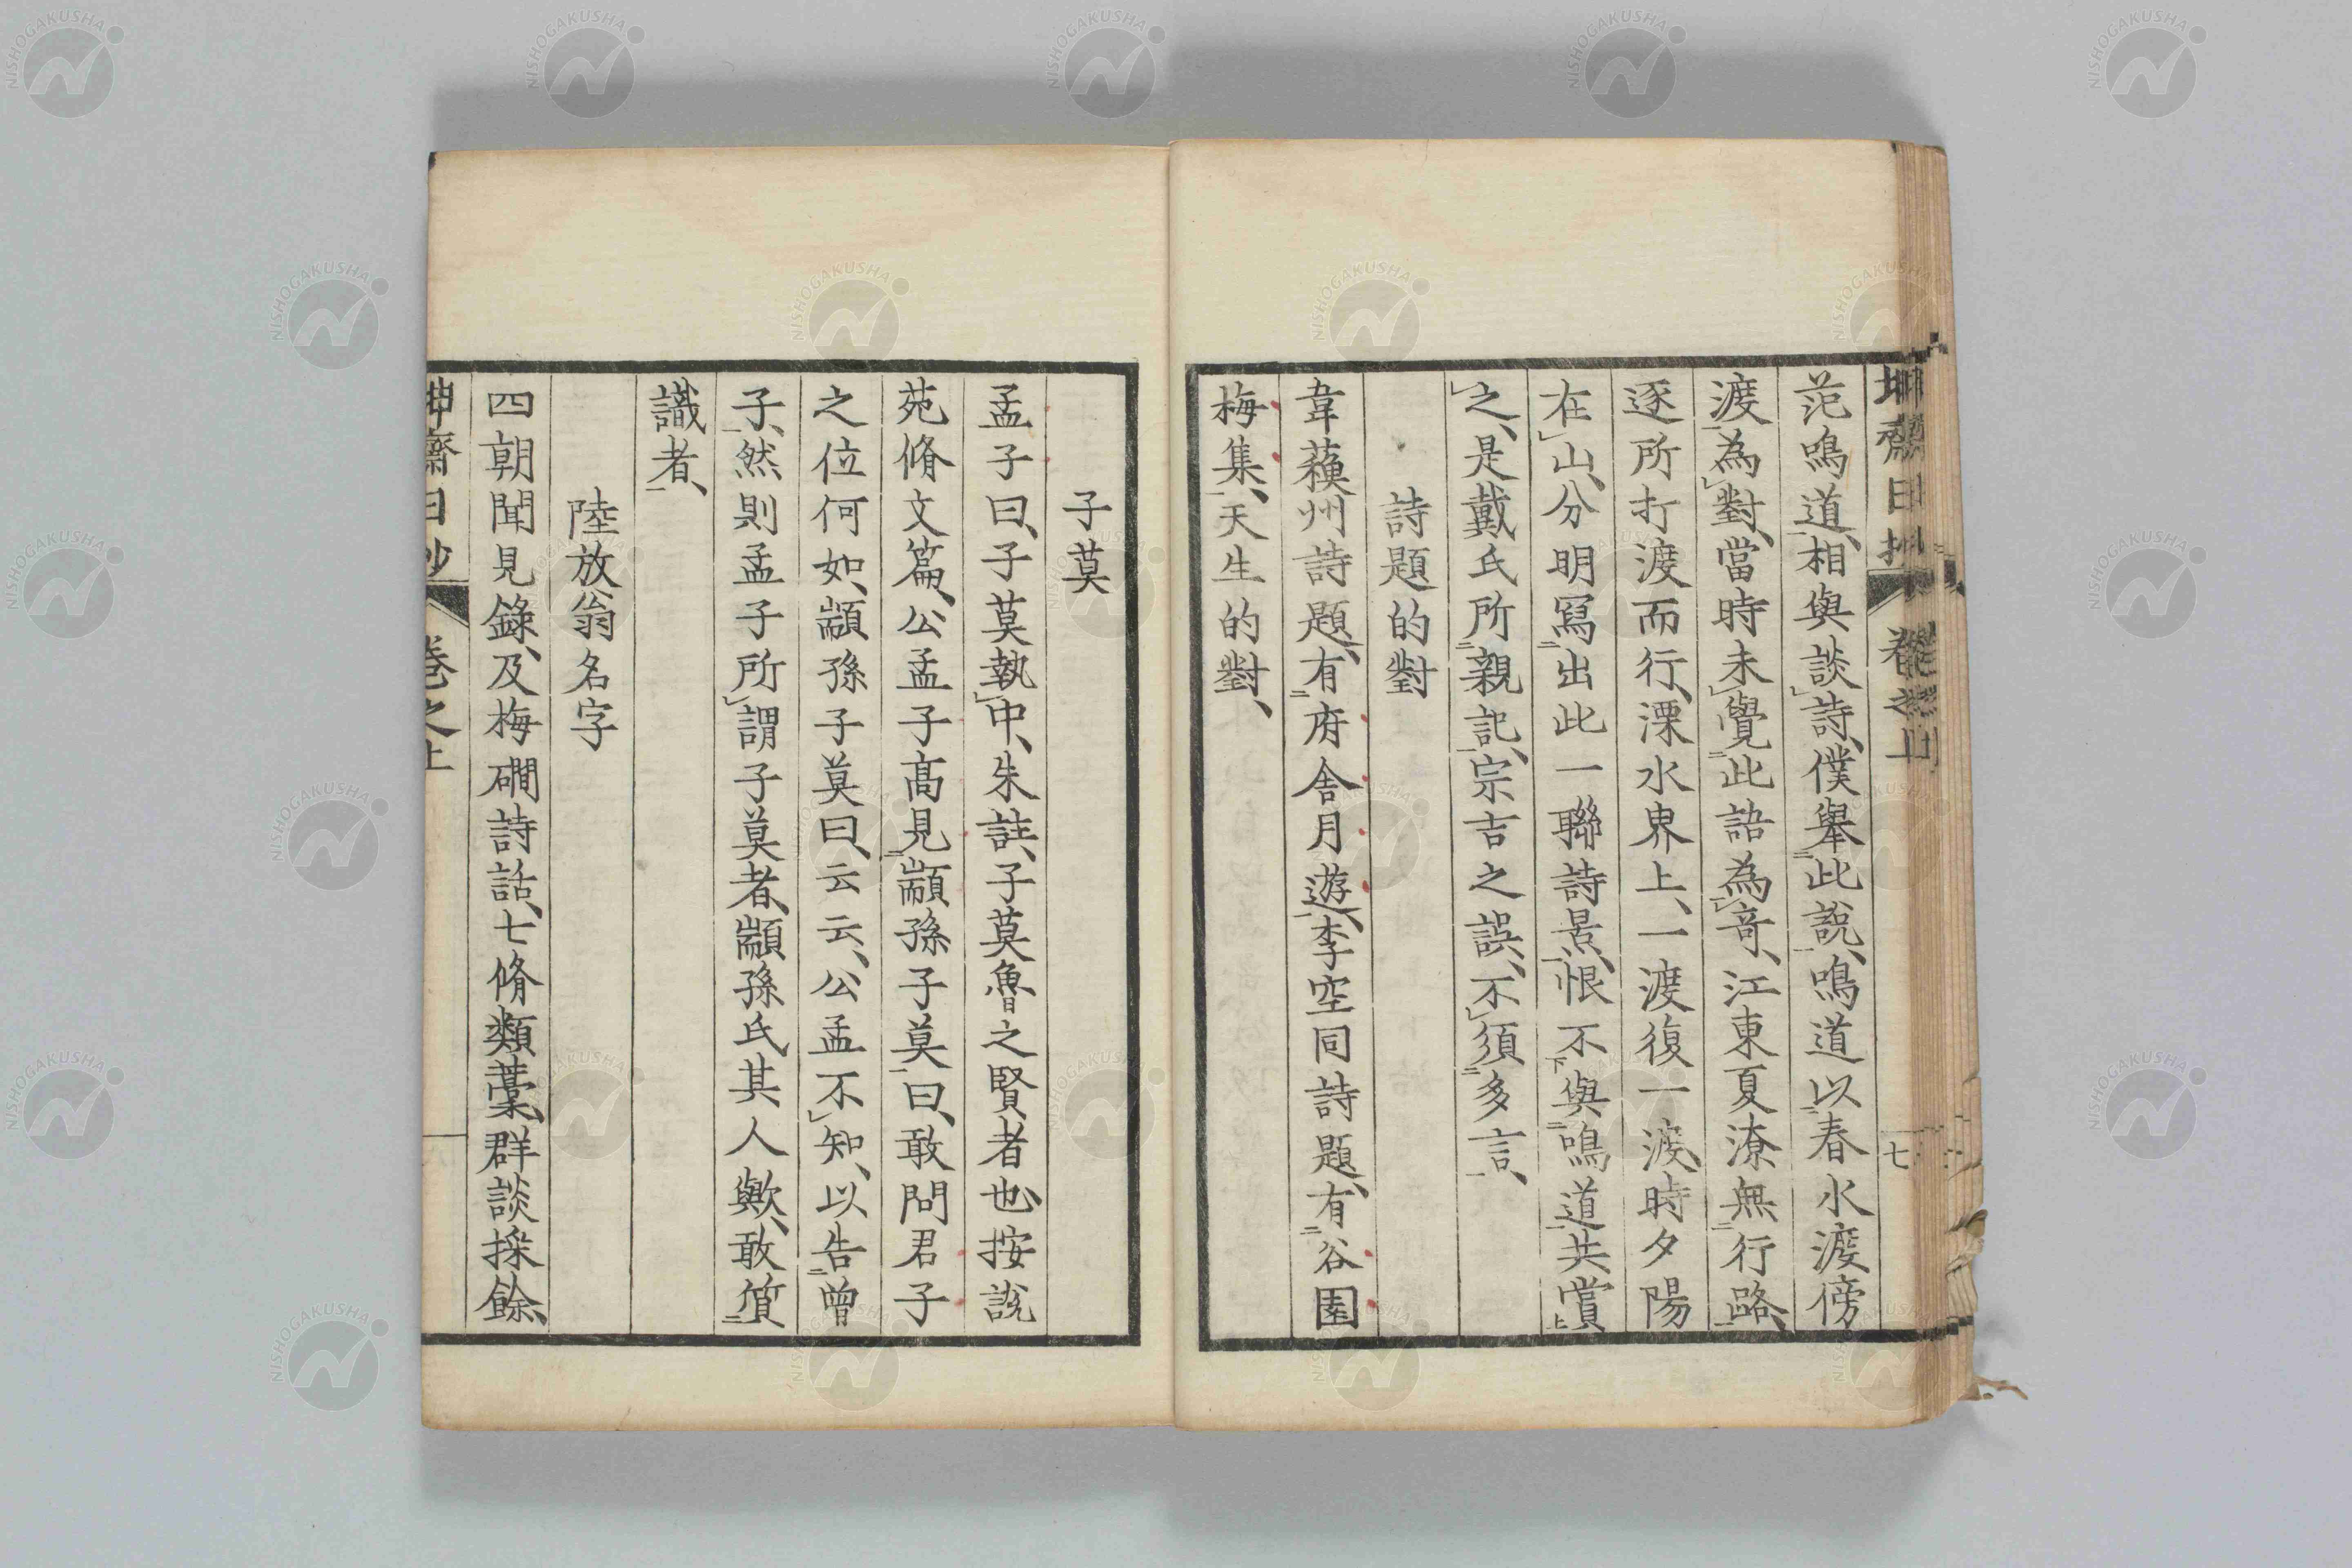 范鳴道、相與談詩、僕舉此說、鳴道以春水渡傍
渡為對、當時未覺此語為奇、江東夏潦無行路、
逐所打渡而行、溧水界上、一渡復一渡、時夕陽
在山、分明寫出此一聯詩景、恨不與鳴道共賞
之、是戴氏所親記、宗吉之誤、不須多言、
詩題的對
韋蘓州詩題、有府舍月遊、李空同詩題、有谷園
梅集、天生的對、
子莫
孟子曰、子莫執中、朱註、子莫魯之賢者也、按說
苑脩文篇、公孟子高見顓孫子莫曰、敢問君子
之位何如、顓孫子莫曰、云云、公孟不知、以告曾
子、然則孟子所謂子莫者、顓孫氏其人歟、敢質
識者、
陸放翁名字
四朝聞見錄、及梅磵詩話、七脩類藁、群談採餘、
齋日抄 卷之上
七
NISHOGAKUSHA